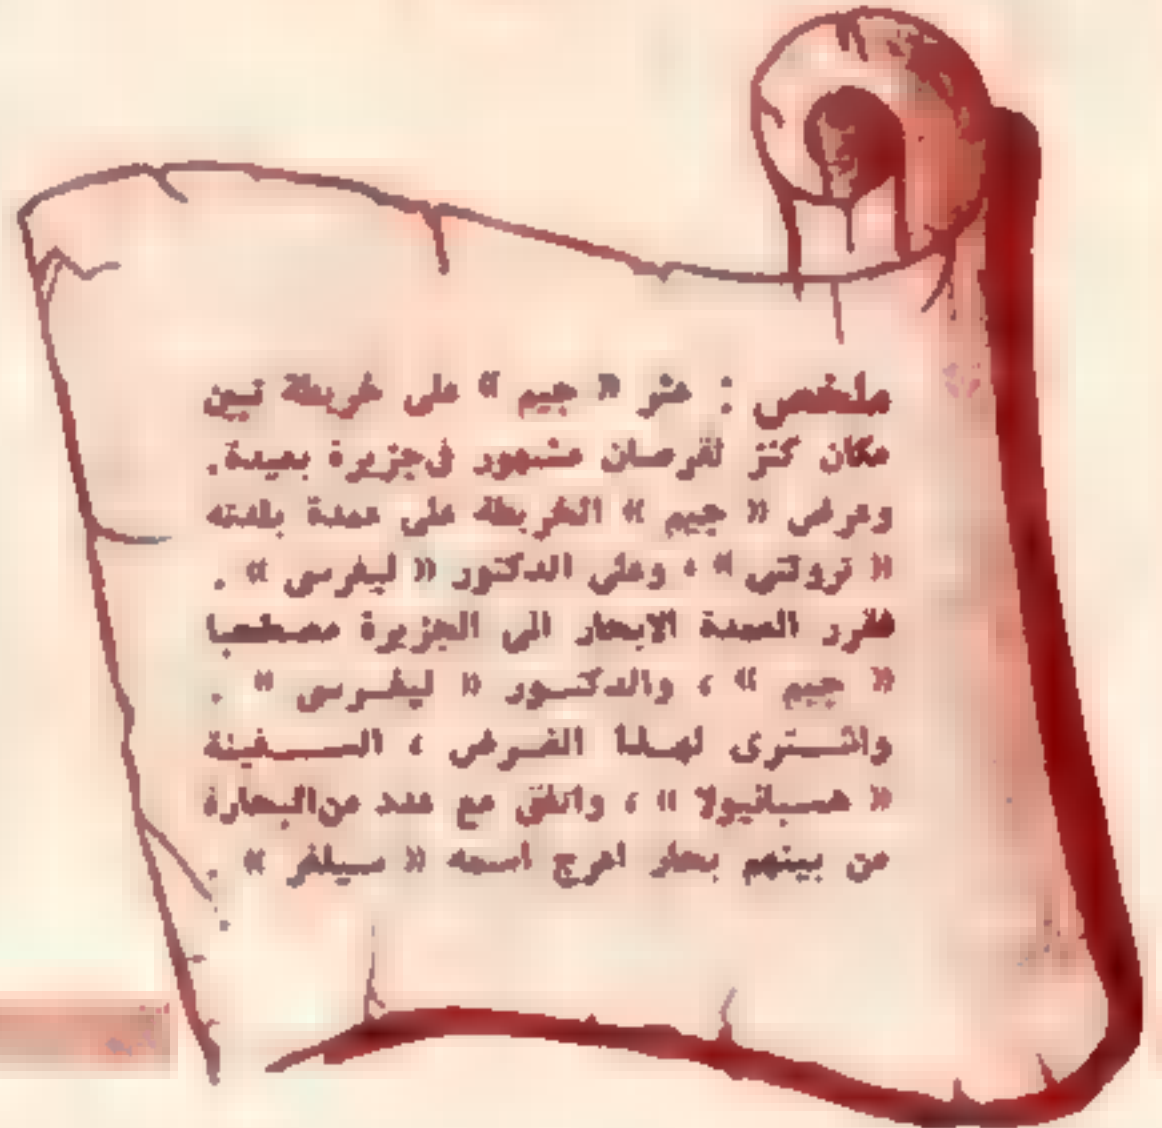 ملخص : عثر « جيم » على خريطة تبين
مكان كنز لقرصان مشهور في جزيرة بعيدة.
وعرض « جيم » الخريطة على عمدة بلدته
« ترولني » ، وعلى الدكتور « ليفرسي » .
فقرر العمدة الابحار الى الجزيرة مصطحبا
« جيم » ، والدكتـور « ليفـرسي » .
واشـترى لهـذا الغـرض ، السـفينة
« هسبانيولا » ، واتفق مع عدد من البحارة
من بينهم بحار اعرج اسمه « سيلفر » .